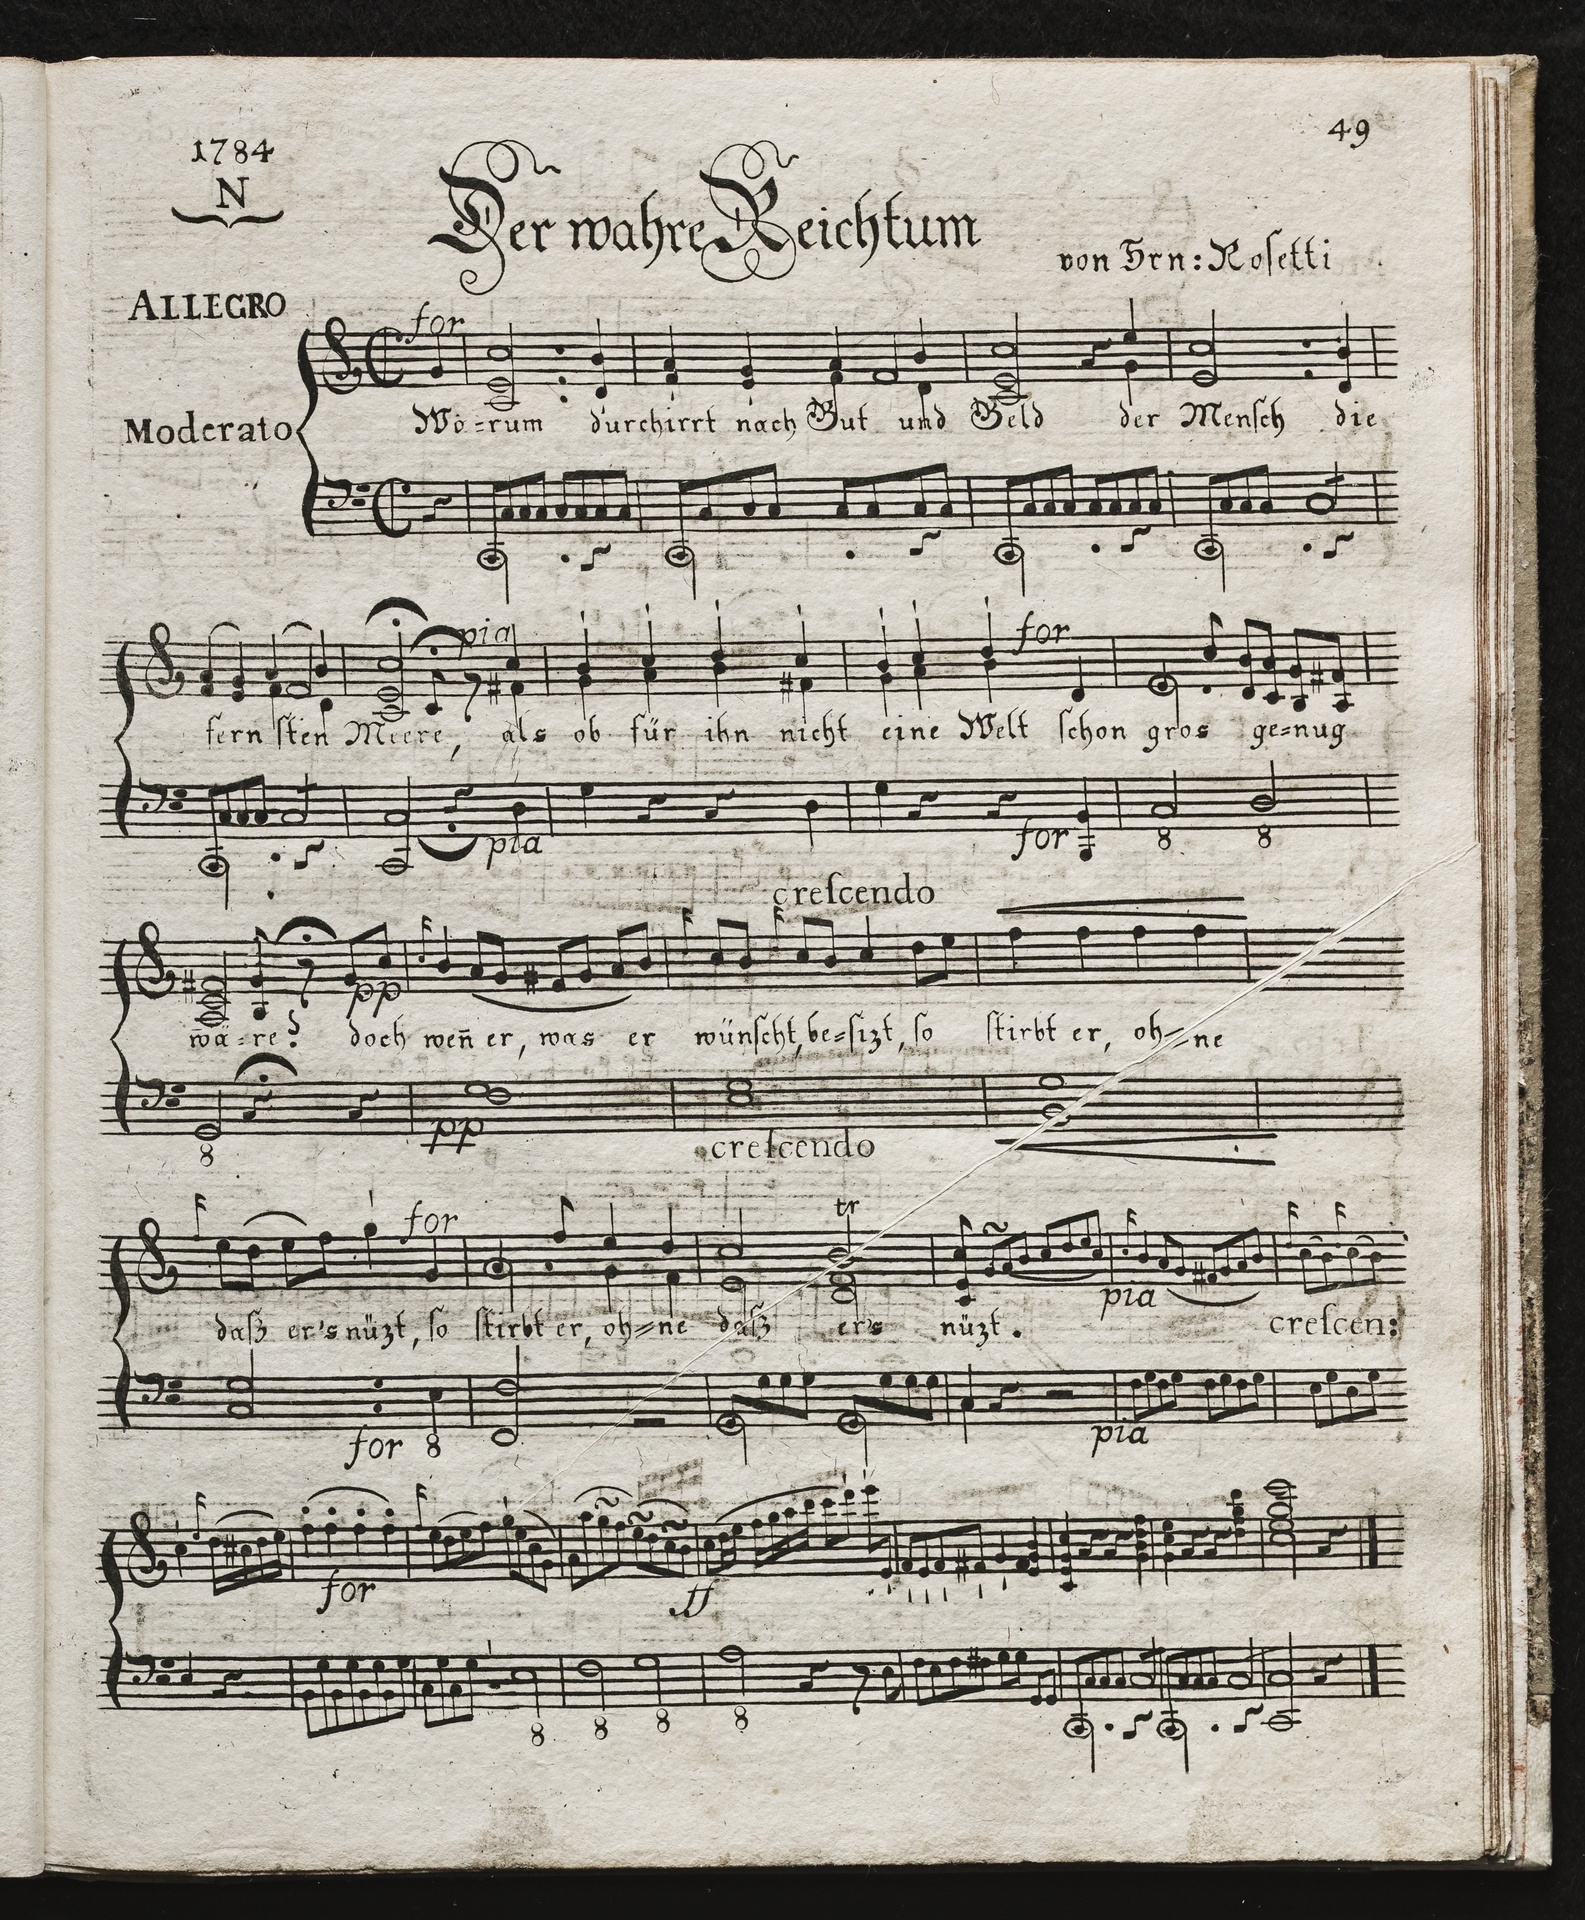 49
1784
N
Der wahre Reichtum
von Hrn: Rosetti
ALLEGRO
Moderato
for
Wo=rum durchirrt nach Gut und Geld der Mensch die
pia for
fernsten Meere, als ob für ihn nicht eine Welt schon gros ge=nug
pia for 8 8
crescendo
pp
wä=re? doch wen̄ er, was er wünscht, be=sizt, so stirbt er, oh=ne
8 pp crescendo
for tr
pia
dasz er's nüzt, so stirbt er, oh=ne dasz er's nüzt. crescen:
for 8 pia
for ff
8 8 8 8